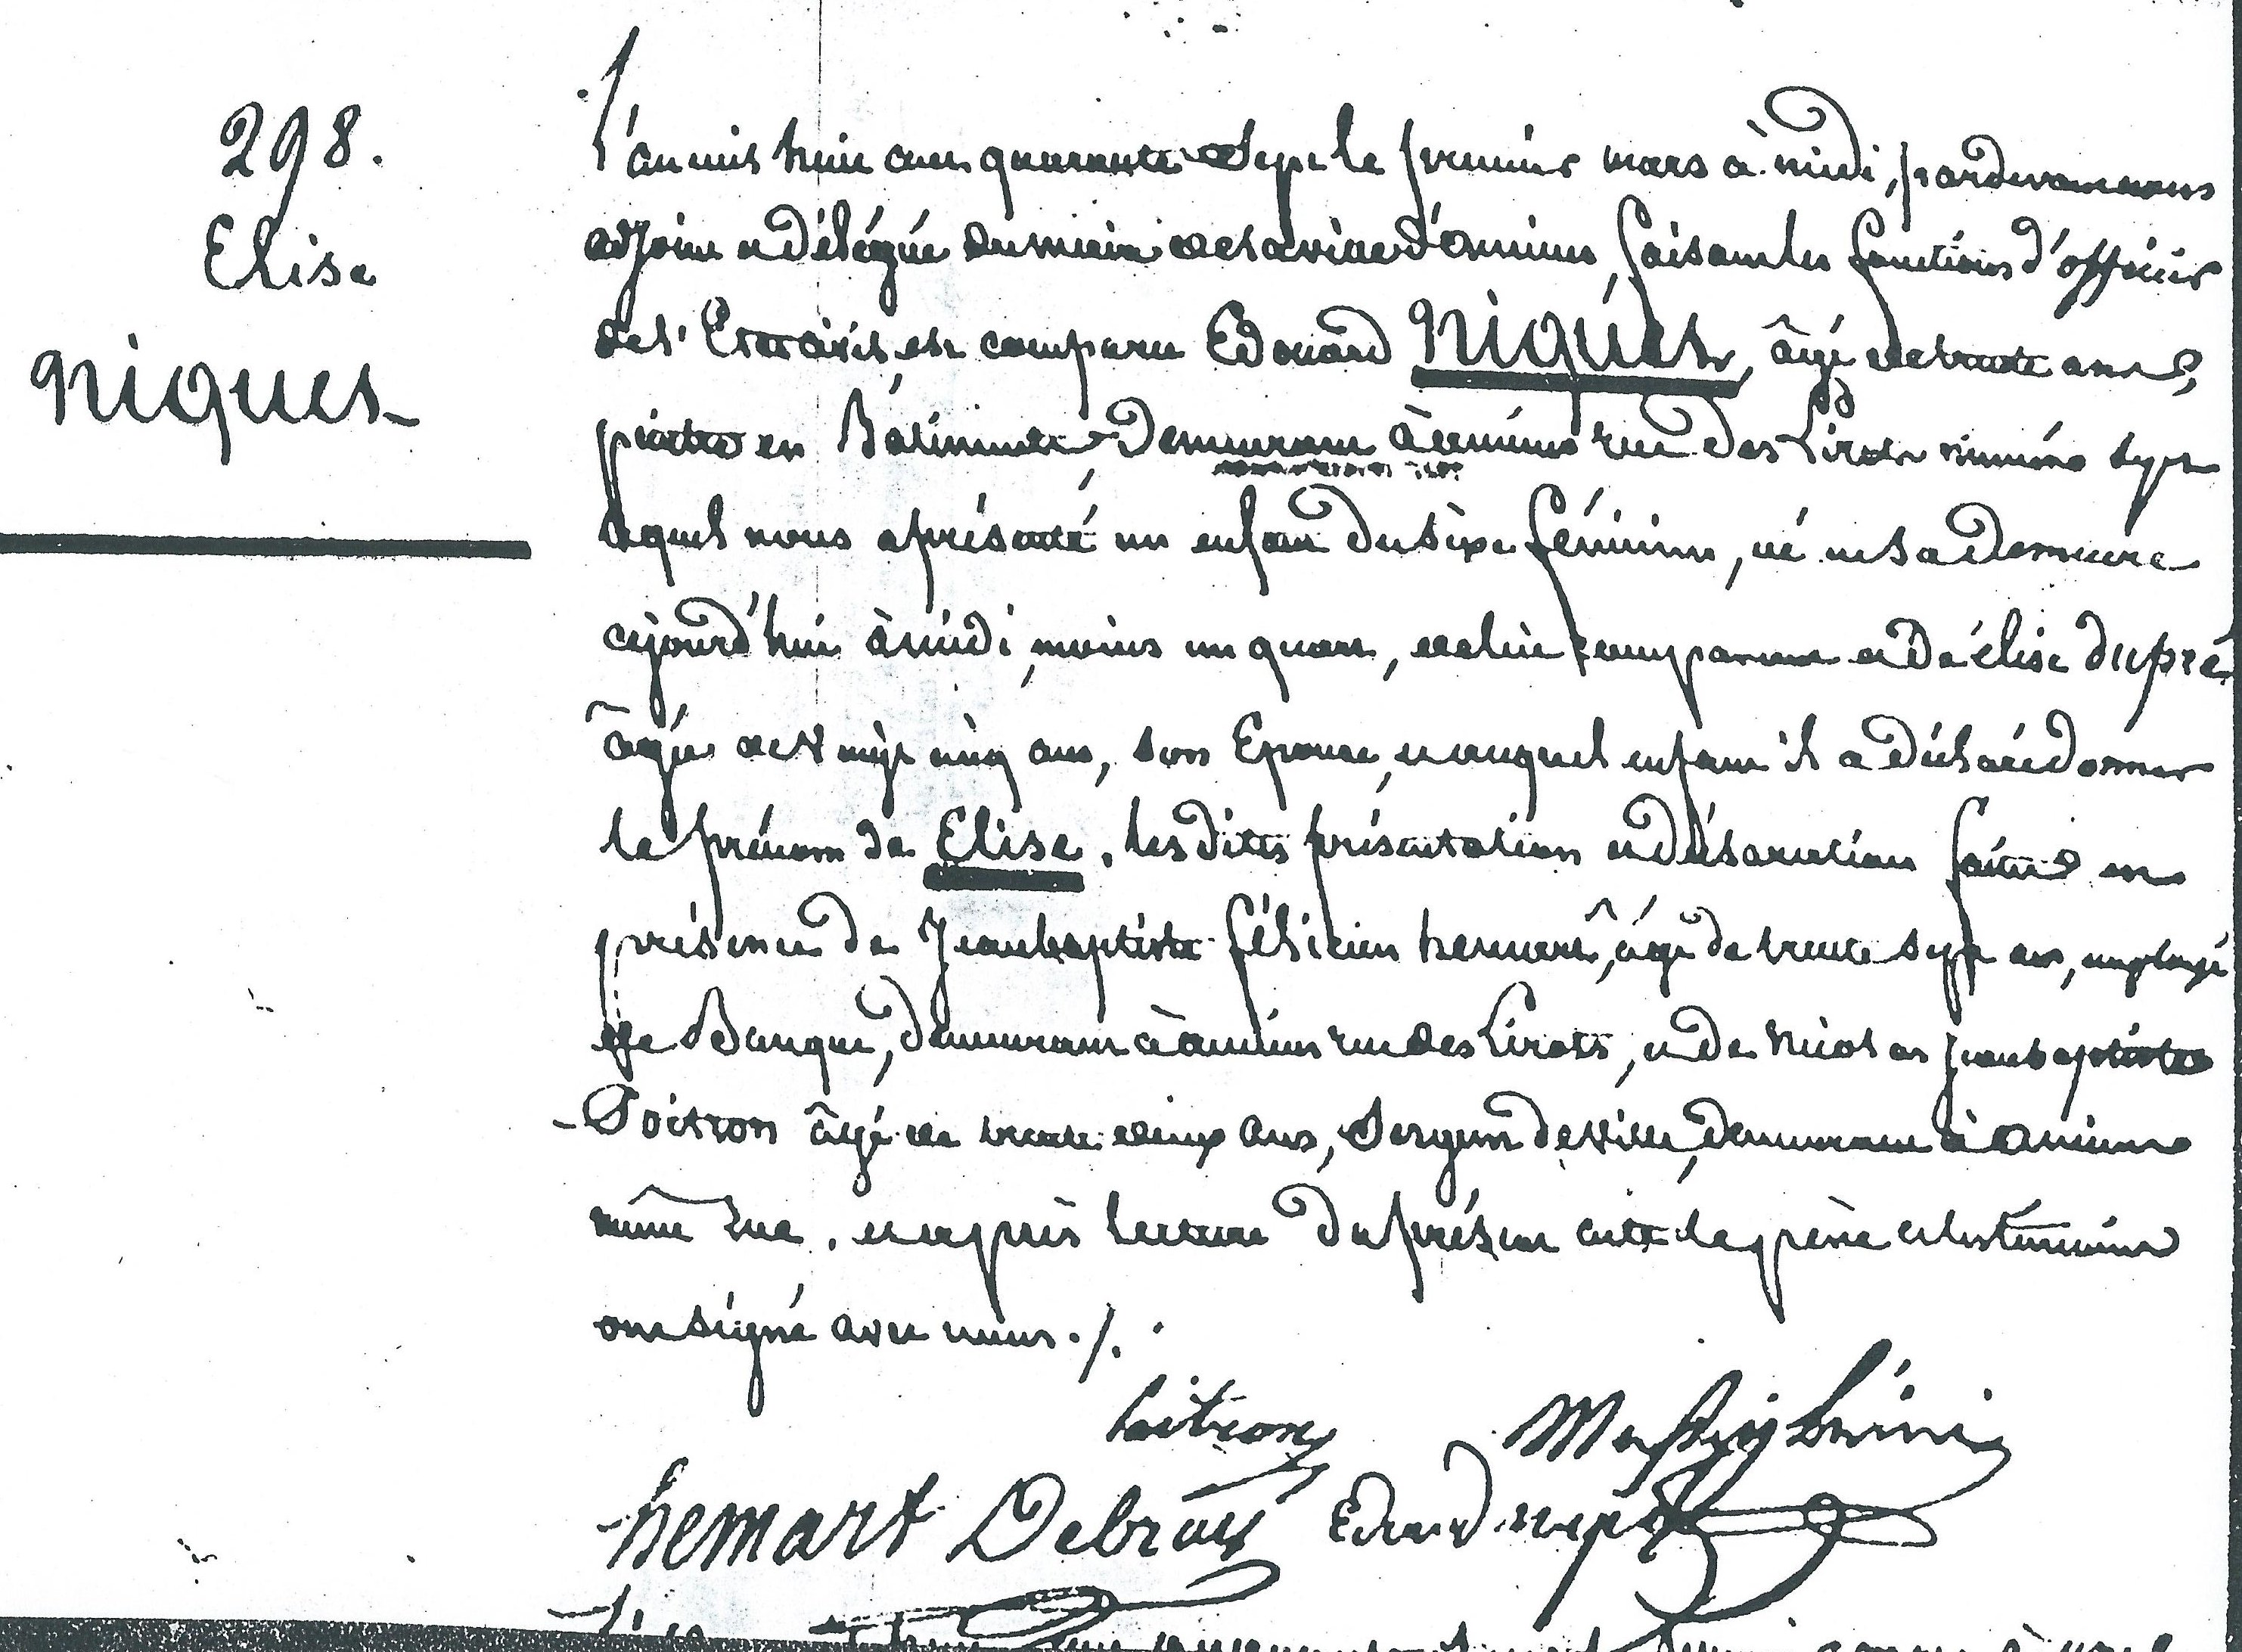 298.
Elise
Niquet
L'an mil huit cent quarante Sept le premier mars à midi, pardevant nous
adjoint délégué du maire de la ville d'amiens, faisant les fonctions d'officier
de l'Etat civil, est comparu Edouard Niquet, âgé de trente ans,
peintre en Bâtiments, Demeurant à amiens rue des Lirots numéro sept
lequel nous a présenté un enfant du sèxe féminin, né en sa Demeure
cejourd'hui à midi, moins un quart, de lui comparant et De élise dupré
âgée de vingt cinq ans, son Epouse, et auquel enfant il a Déclaré donner
le prénom de Elise, les dites présentation et déclaration faites en
présence de Jean baptiste félicien hemart, âgé de trente sept ans, employé
de Banque, demeurant à amiens rue des Lirots, et de Nicolas Jean baptiste
Poitron âgé de trente deux ans, Sergent de Ville, demeurant à amiens
même rue, et après lecture du présent acte le père et les témoins
ont signé avec nous ./.
Poitron
hemart Debray Edouard niquet